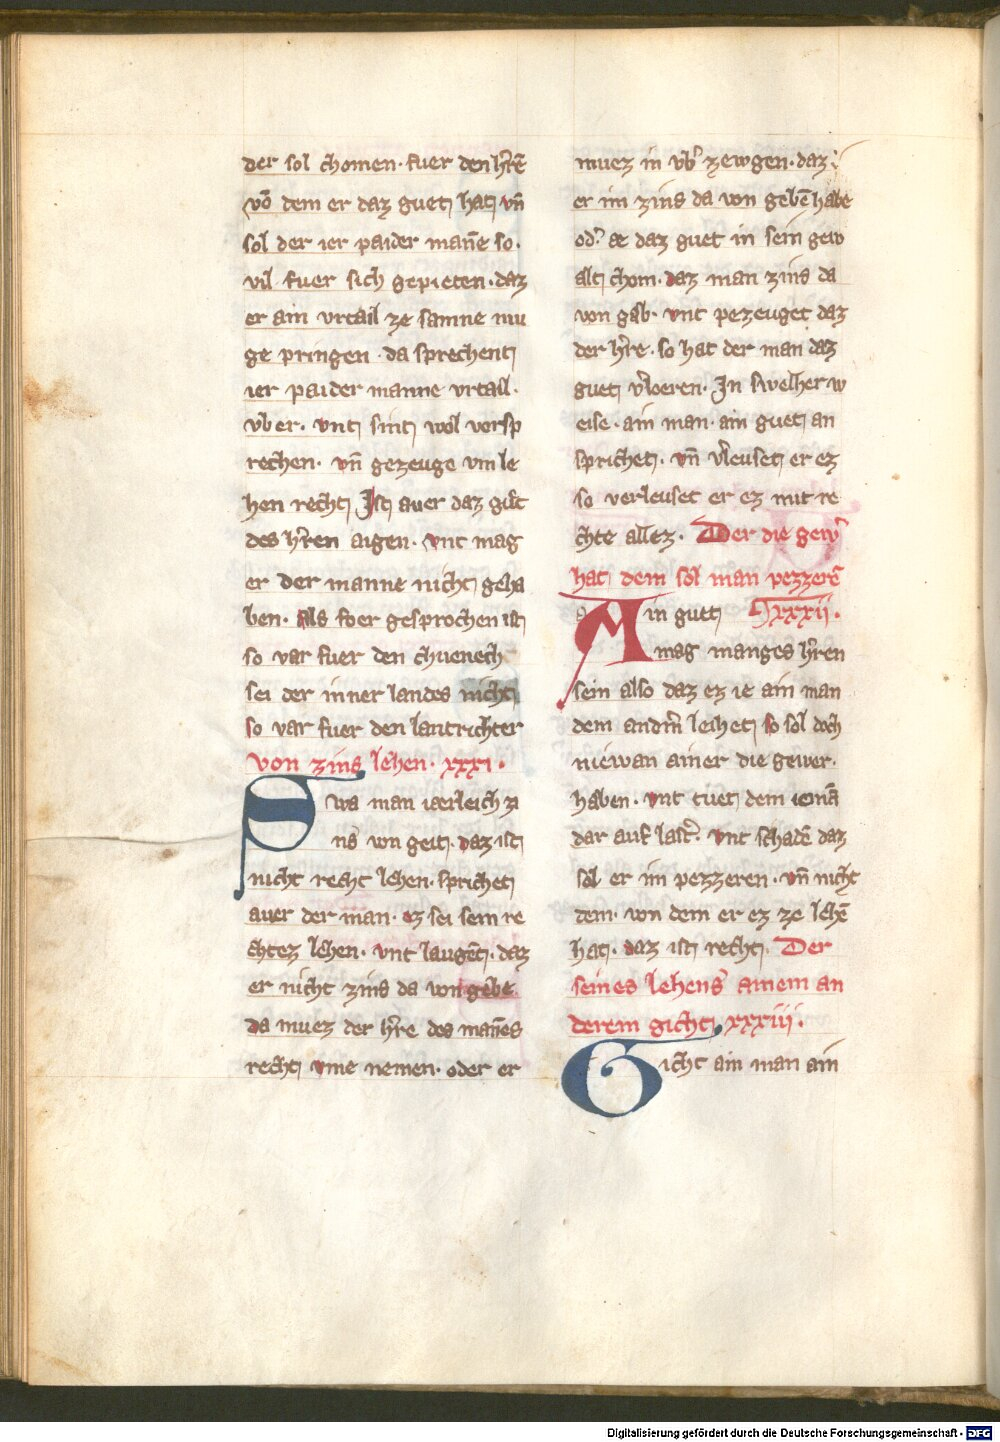 der sol chomen· fuer den hr̄ē
võ dem er daz guet hat vñ
sol der ier paider mañe so·
vil fuer sich gepieten· daz
er ain vrtail ze samne mu
ge pringen· da sprechent
ier paider manne vrtail·
vber· vnt sint wol versp
rechen· vñ gezeuge vm le
hen recht Ist auer daz gůt
des hr̄ren aigen· vnt mag
er der manne nicht geha
ben· als foer gesprochen ist
so var fuer den chuenech
sei der inner landes nicht
so var fuer den lantrichter
von zins lehen· xxxi·
Swa man iaerleich zi
ns von geit· daz ist
nicht recht lehen· sprichet
auer der man· ez sei sein re
chtez lehen· vnt laugēt· daz
er nicht zins da von gebe
da muez der hr̄re des mañes
recht vme nemen· oder er
muez in vb̄ zewgen· daz
er im zins da von gebē habe
od̄· ae daz guet in sein gew
alt chom· daz man zins da
von gab· vnt pezeuget daz
der hr̄re· so hat der man daz
guet v̄loeren· In swelher w
eise· ain man· ain guet an
sprichet· vñ v̄leuset er ez
so verleuset er ez mit re
chte allez· Der die gew̄
hat dem sol man pezzerē
Ain guet xxxii·
mag manges hr̄ren
sein also daz ez ie ain man
dem anderm̄ leihet so sol doch
niewan ainer die gewer·
haben· vnt tuet dem iemā
dar auf last̄· vnt schadē daz
sol er im pezzeren· vñ nicht
dem· von dem er ez ze lehē
hat· daz ist recht· Der
seines lehens ainem an
derem gicht xxxiii·
Gicht ain man ain
Digitalisierung gefördert durch die Deutsche Forschungsgemeinschaft - DFG